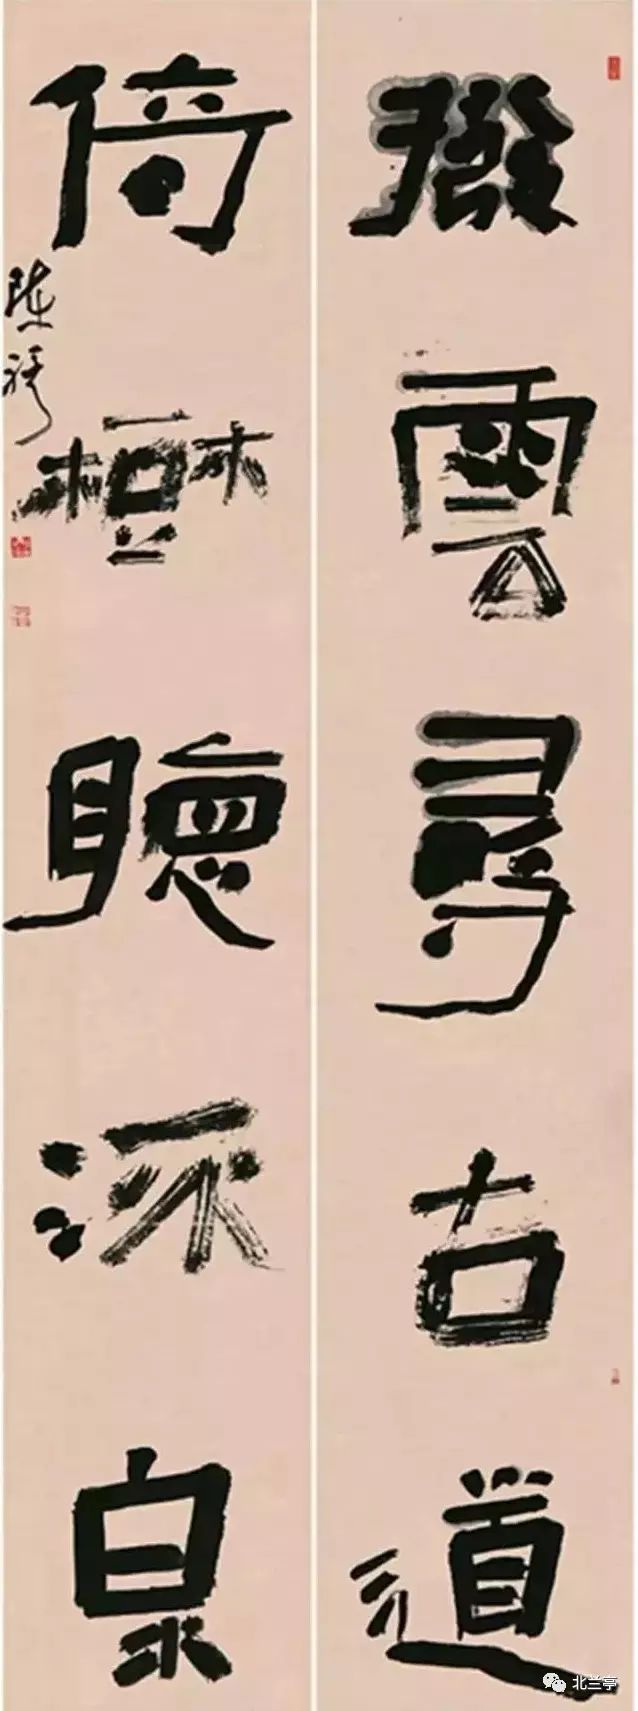 撥雲尋古道
倚樹聽流泉
北兰亭